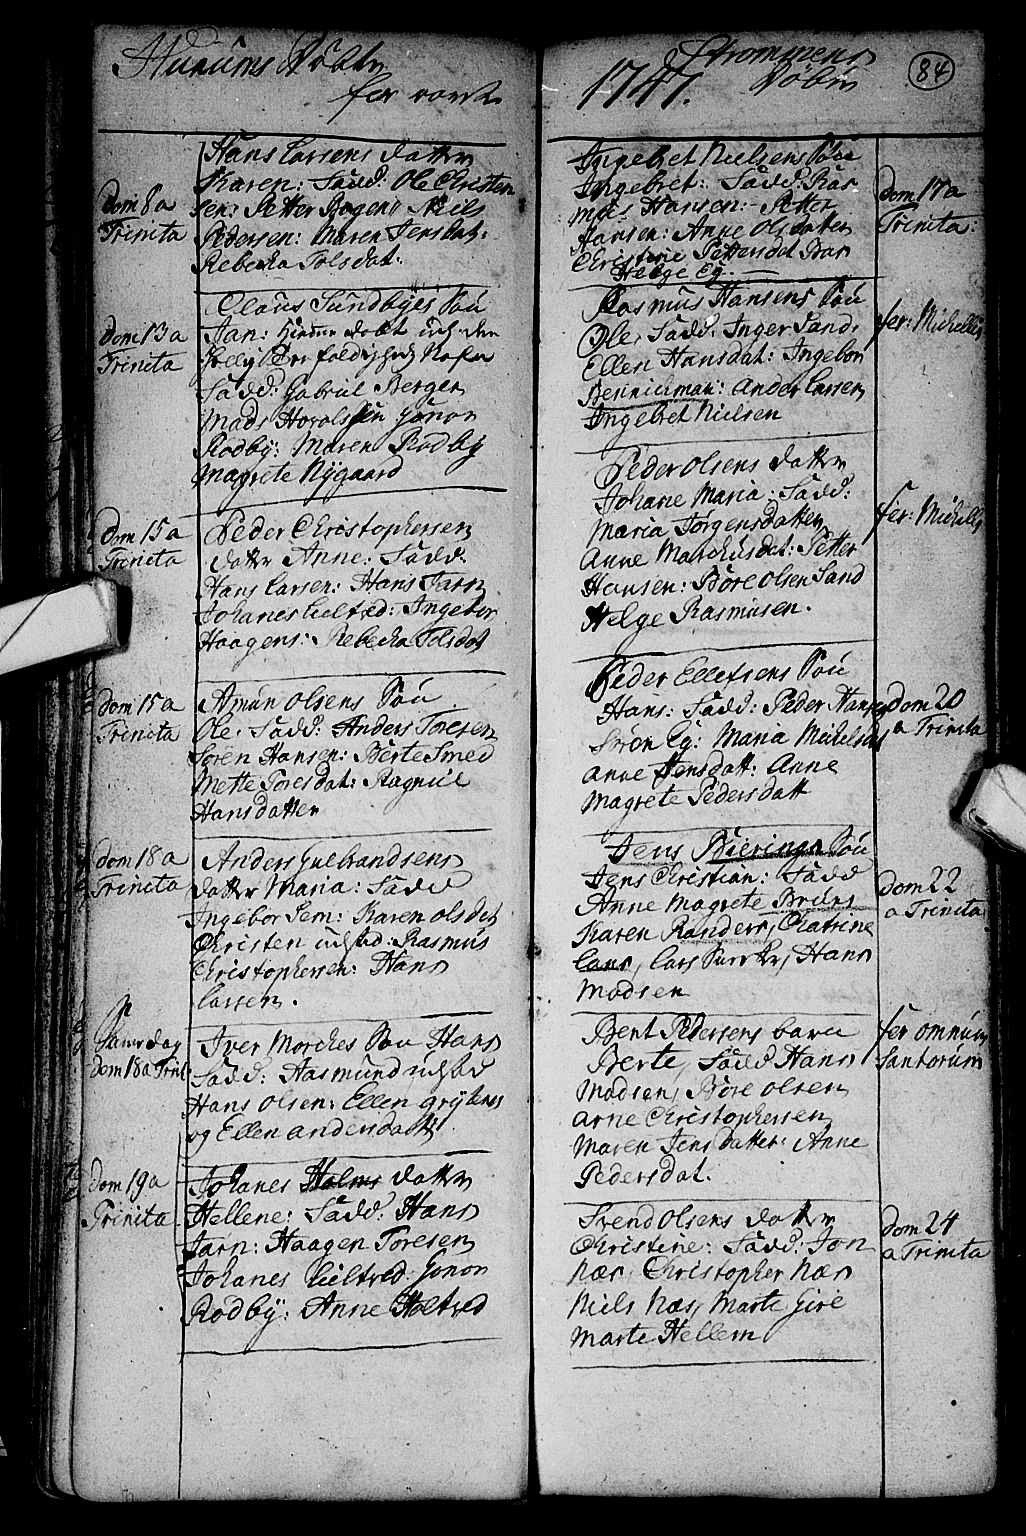 Hurums Døbte
for vorte
dom 8 a
Trinita
Hans Larsens datter
Karen: Fadd: Ole Christen
sen: Petter Bogen Niels
Pedersen: Maren Jens dat:
Rebecka Tolsdat:
dom 13 a
Trinita
Claus Sundbyes Søn
Jan: hiemme døbt udj den
Hellig
Fadd: Gabriel Berger
Mads Gonor
Rodby: Maren Rodby
Magrete Nygaard
dom 15 a
Trinita
Peder Christophersen
datter Anne: Fadd:
Hans Larsen: Hans Tarn
Johanes Ingebor
Haagens: Rebecka Tolsdat
dom 15 a
Trinita
Amun Olsens Søn
Ole, Fadd: Anders Toresen
Søren Hansen: Berte Smed
Mette Toresdat: Ragnil
Hansdatter
dom 18 a
Trinita
Anders Gulbrandsens
datter Maria: Fadd
Ingebor Sem: Karen Olsdat
Christen Rasmus
Christophersen: Hans
Larsen.
dom 18 a Trinit
Iver Morches Søn Hans
Fadd: Aasmund
Hans Olsen: Ellen
og Ellen Andersdatt
dom 19 a
Trinita
Johanes Holms datter
Hellene: Fadd: Hans
Tarn: Haagen Toresen
Johanes Gonor
Rodby: Anne Holtved
1747.
Strømmens
Døbte
84
Ingebret Nielsens Søn
Ingebret: Fadd: Ras
mus Hansen: Petter
Hansen: Anne Olsdatter
Christine Pettersdat
Helge Eg.
dom 17 a
Trinita:
Rasmus Hansens Søn
Ole, Fadd: Inger Sand:
Ellen Hansdat: Ingebor
Anders Larsen
Ingebret Nielsen
fer: Michelis
Peder Olsens datter
Johane Maria: Fadd:
Maria Jørgensdatter
Anne Marchusdat: Petter
Hansen: Børe Olsen Sand
Helge Rasmusen.
fer: Michelis
Peder Ellefsens Søn
Hans: Fadd: Peder Hansen
Eg: Maria Michelsdat
Anne Jensdatt: Anne
Magrete Pedersdatt
dom 20
a Trinita
Jens Bierings Søn
Jens Christian: Fadd
Anne Magrete Bruns
Karen Randers, Chatrine
Lans, Lars Hans
Madsen
dom 22
a Trinita
Bent Pedersens barn
Berte, Fadd Hans
Madsen, Børe Olsen
Arne Christophersen
Maren Jensdatter: Anne
Pedersdat.
fer omnium
Santorum
Svend Olsens datter
Christine: Fadd: Jon
Næs, Christopher Næs
Niels Næs, Marte Gire
Marte Hellem
dom 24
a Trinita